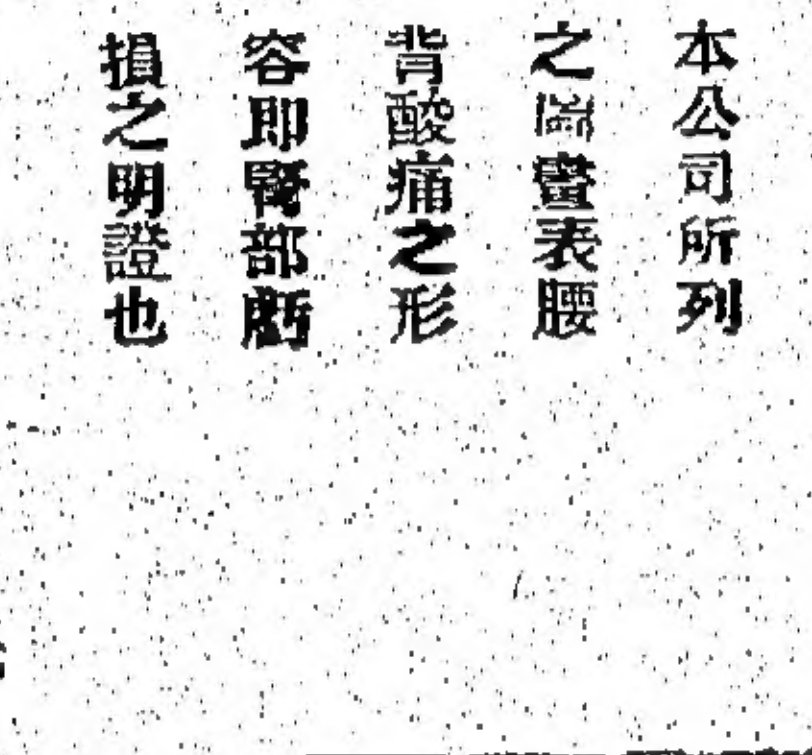 本公司所列
之圖畫表腰
背酸痛之形
容即腎部虧
損之明證也